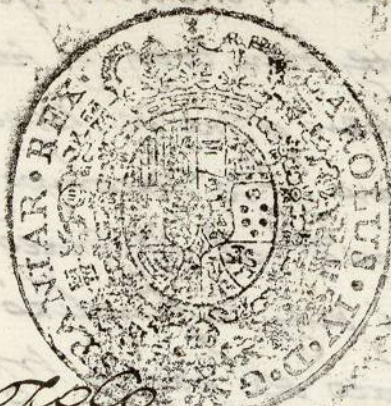 CAROLUS·IV·D·G·
PANIAR·REX·